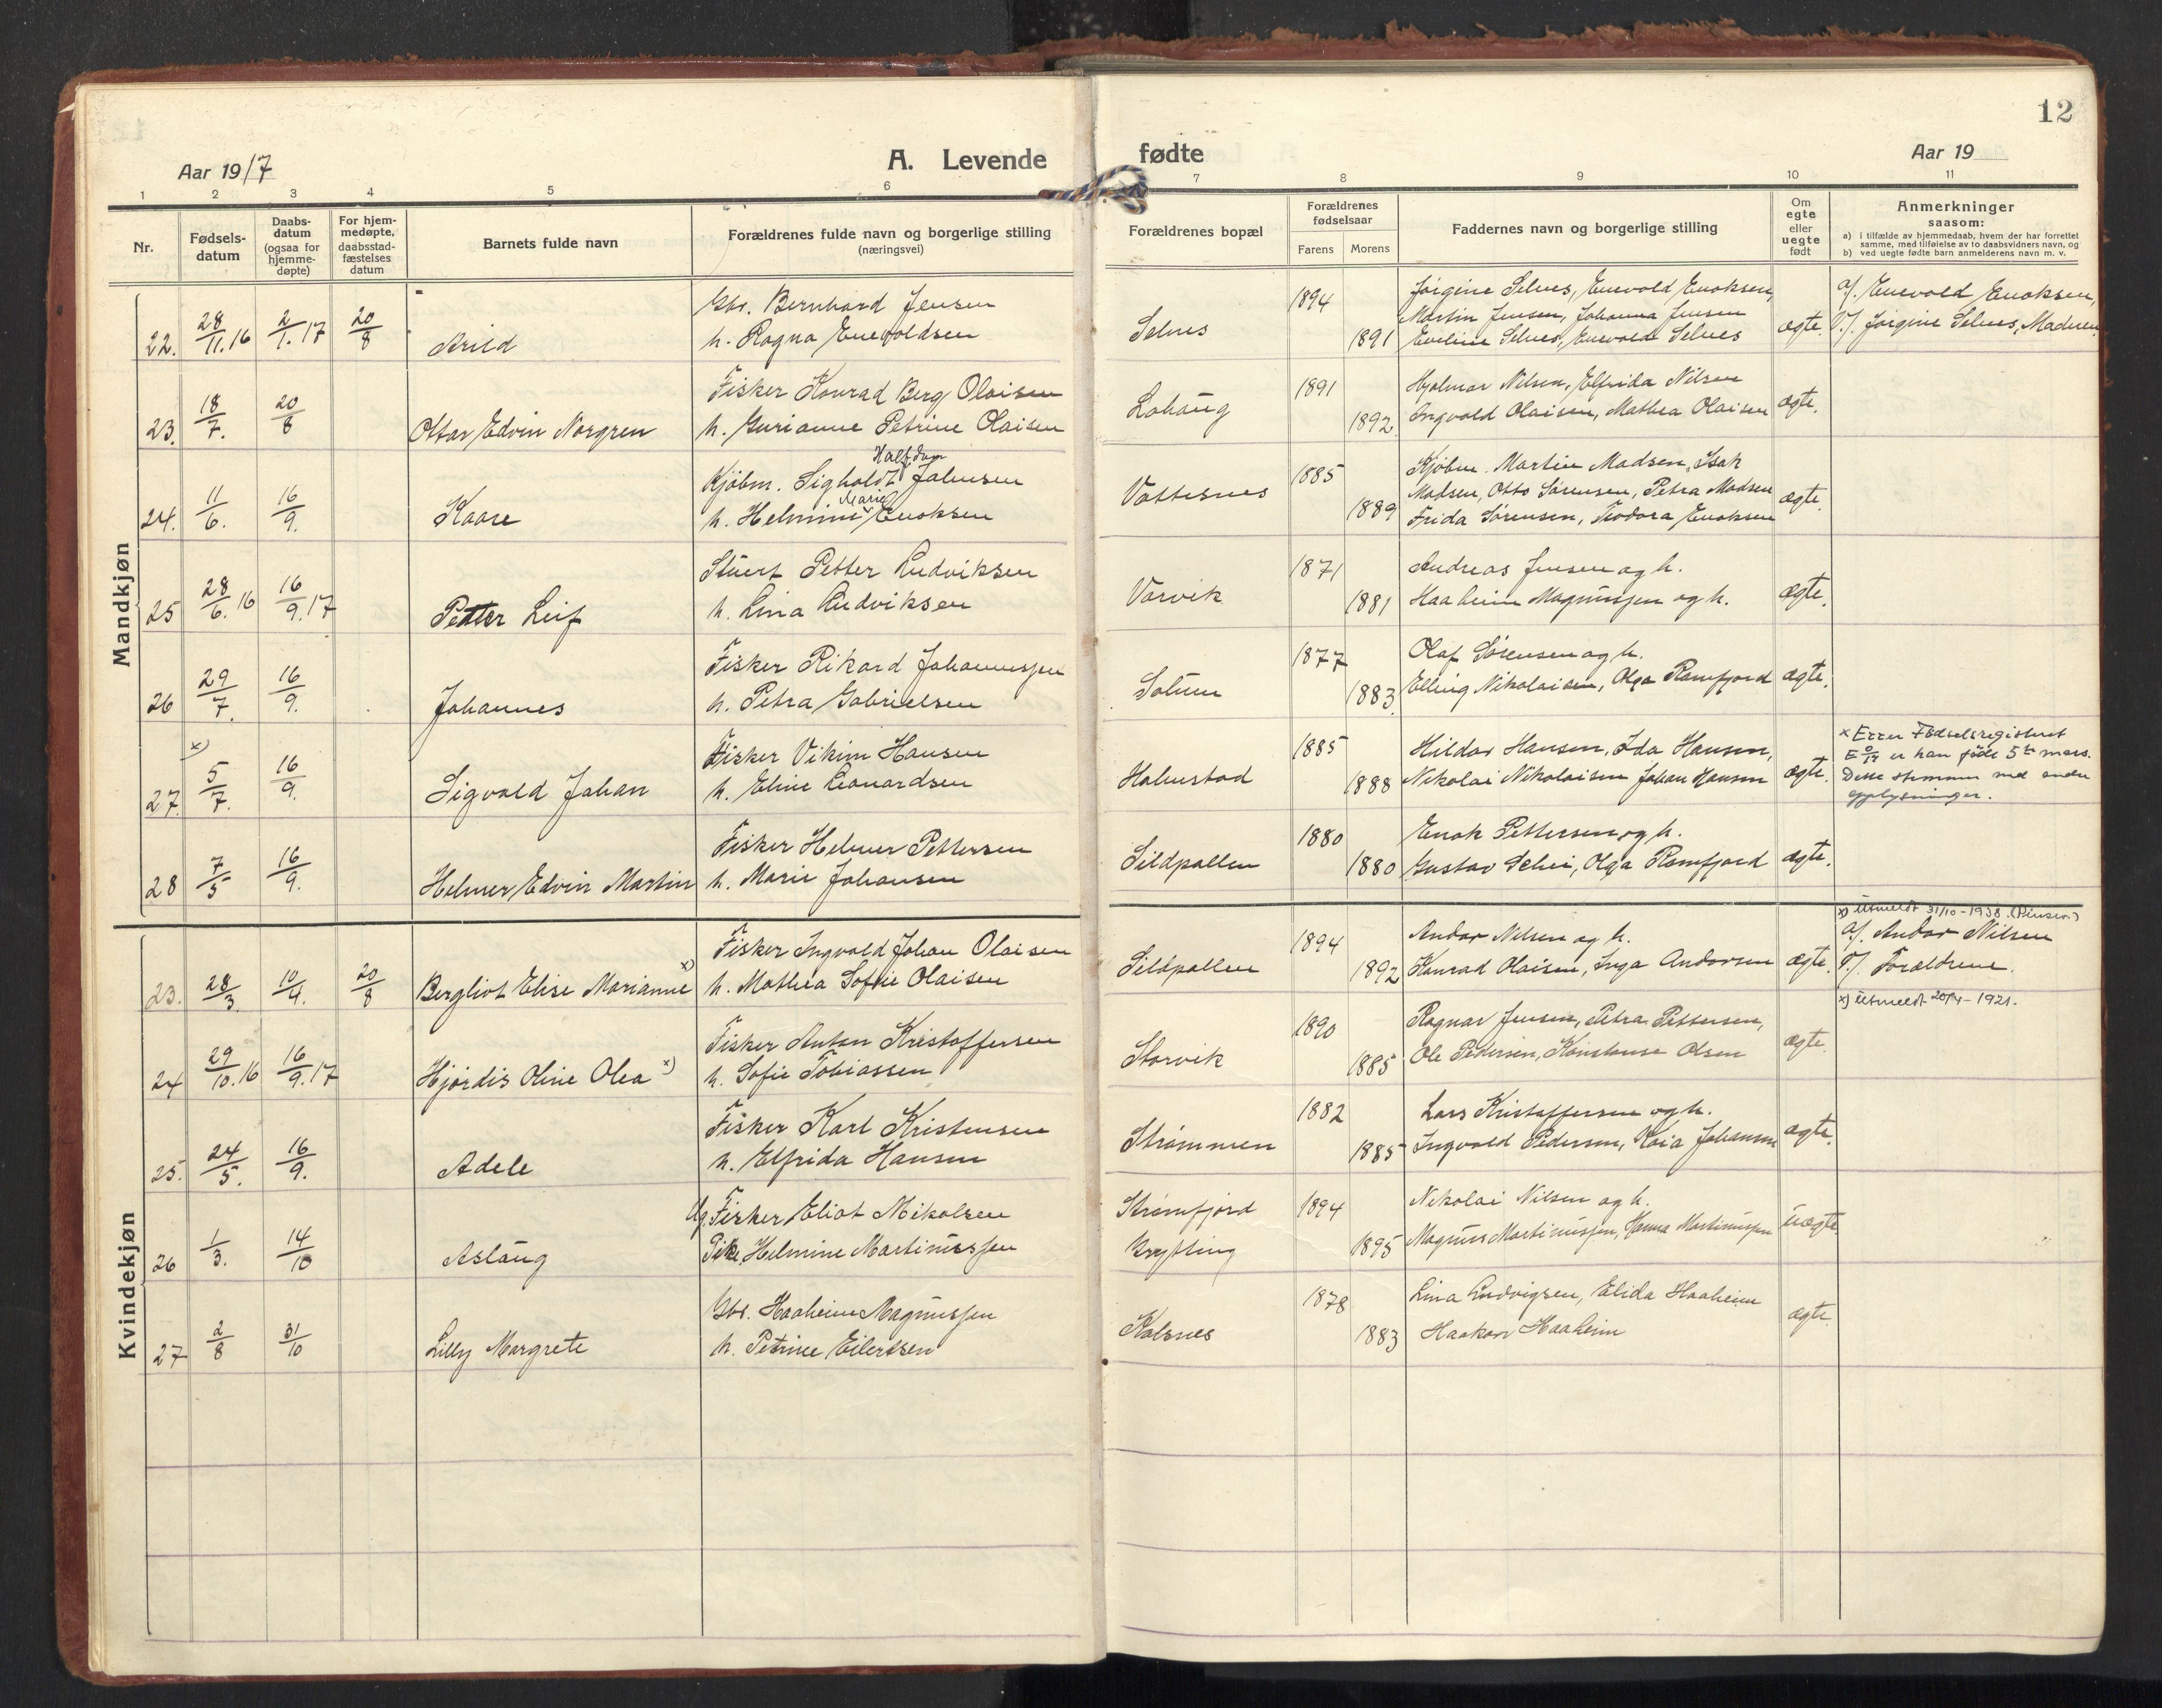 12
Aar 1917
A. Levende fødte
Aar 19
1 2 3 4 5 6 7 8 9 10 11
Nr.
Fødsels-
datum
Daabs-
datum
(ogsaa for
hjemme-
døpte)
For hjem-
medøpte,
daabsstad-
fæstelses
datum
Barnets fulde navn
Forældrenes fulde navn og borgerlige stilling
(næringsvei)
Forældrenes bopæl
Forældrenes
fødselsaar
Farens Morens
Faddernes navn og borgerlige stilling
Om
egte
eller
uegte
født
Anmerkninger
saasom:
a) i tilfælde av hjemmedaab, hvem der har forrettet
samme, med tilføielse av to daabsvidners navn, og
b) ved uegte fødte barn anmelderens navn m. v.
Mandkjøn
22. 28/11.16 2/1.17 20/8 Arild
Gbr. Bernhard Jensen
h. Ragna Enevoldsen
Selnes 1894 1891
Jørgine Selnes, Enevold Enoksen,
Martin Jensen, Johanna Jensen
Eveline Selnes, Enevold Selnes
ægte.
a/. Enevold Enoksen,
V./. Jørgine Selnes,
23. 18/7. 20/8 Ottar Edvin Norgren
Fisker Konrad Berg Olaisen
h. Gurianne Petrine Olaisen
Lohaug 1891 1892.
Hjalmar Nilsen, Elfrida Nilsen
Ingvald Olaisen, Mathea Olaisen
ægte.
24. 11/6. 16/9. Kaare
Halfdan
Kjøbm. Sigholdt Johnsen
Marie
h. Helmine Enoksen
Vattesnes 1885 1889
Kjøbm. Martin Madsen, Isak
Madsen, Otto Sørensen, Petra Madsen
Frida Sørensen, Teodora Enoksen
ægte.
25 28/6.16 16/9.17 Petter Leif
Stuert Petter Ludviksen
h. Lina Ludviksen
Vorvik 1871 1881
Andreas Jensen og h.
Haaheim Magnussen og h.
ægte.
26 29/7. 16/9. Johannes
Fisker Rikard Johannessen
h. Petra Gabrielsen
Solum 1877 1883.
Olaf Sørensen og h.
Elling Nikolaisen, Olga Ramfjord
ægte.
27. x) 5/7. 16/9. Sigvald Johan
Fisker Vikim Hansen
h. Eline Leonardsen
Holmstad 1885 1888
Hildor Hansen, Ida Hansen,
Nikolai Nikolaisen Johan Hansen
ægte.
x Etter Fødselsregisteret
er han født 5te mars.
Dette stemmer med andre
opplysninger.
28 7/5 16/9. Helmer Edvin Martin
Fisker Helmer Pettersen
h. Marie Johansen
Sildpollen 1880 1880
Enok Pettersen og h.
Gustav Schei, Olga Ramfjord
ægte.
Kvindekjøn
23. 28/3. 10/4. 20/8 Bergliot Elise Marianne x)
Fisker Ingvald Johan Olaisen
h. Mathea Sofie Olaisen
Sildpollen 1894 1892
Andor Nilsen og h.
Konrad Olaisen, Inga Andorsen
ægte.
x) Utmeldt 31/10-1938. (Pinsev.)
a/. Andor Nilsen
V./. Forældrene.
24 29/10.16 16/9.17 Hjørdis Oline Olea x)
Fisker Anton Kristoffersen
h. Sofie Tobiassen
Storvik 1890 1885
Ragnar Jensen, Petra Pettersen,
Ole Pedersen, Konstanse Olsen
ægte.
x) Utmeldt 20/4-1921.
25. 24/5. 16/9. Adele
Fisker Karl Kristensen
h. Elfrida Hansen
Strømmen 1882 1885
Lars Kristoffersen og h.
Ingvald Pedersen, Kaia Johansen
ægte.
26 1/3. 14/10 Aslaug
Ug. Fisker Eliot Mikalsen
Pike Helmine Martinussen
Strømfjord
1894 1895
Nikolai Nilsen og h.
Magnus Martinussen, Hanna Martinussen
uægte.
27 2/8 31/10 Lilly Margrete
Gbr. Haaheim Magnussen
h. Petrine Eilertsen
Kalsnes 1878 1883
Lina Ludvigsen, Elida Haaheim
Haakon Haaheim
ægte.